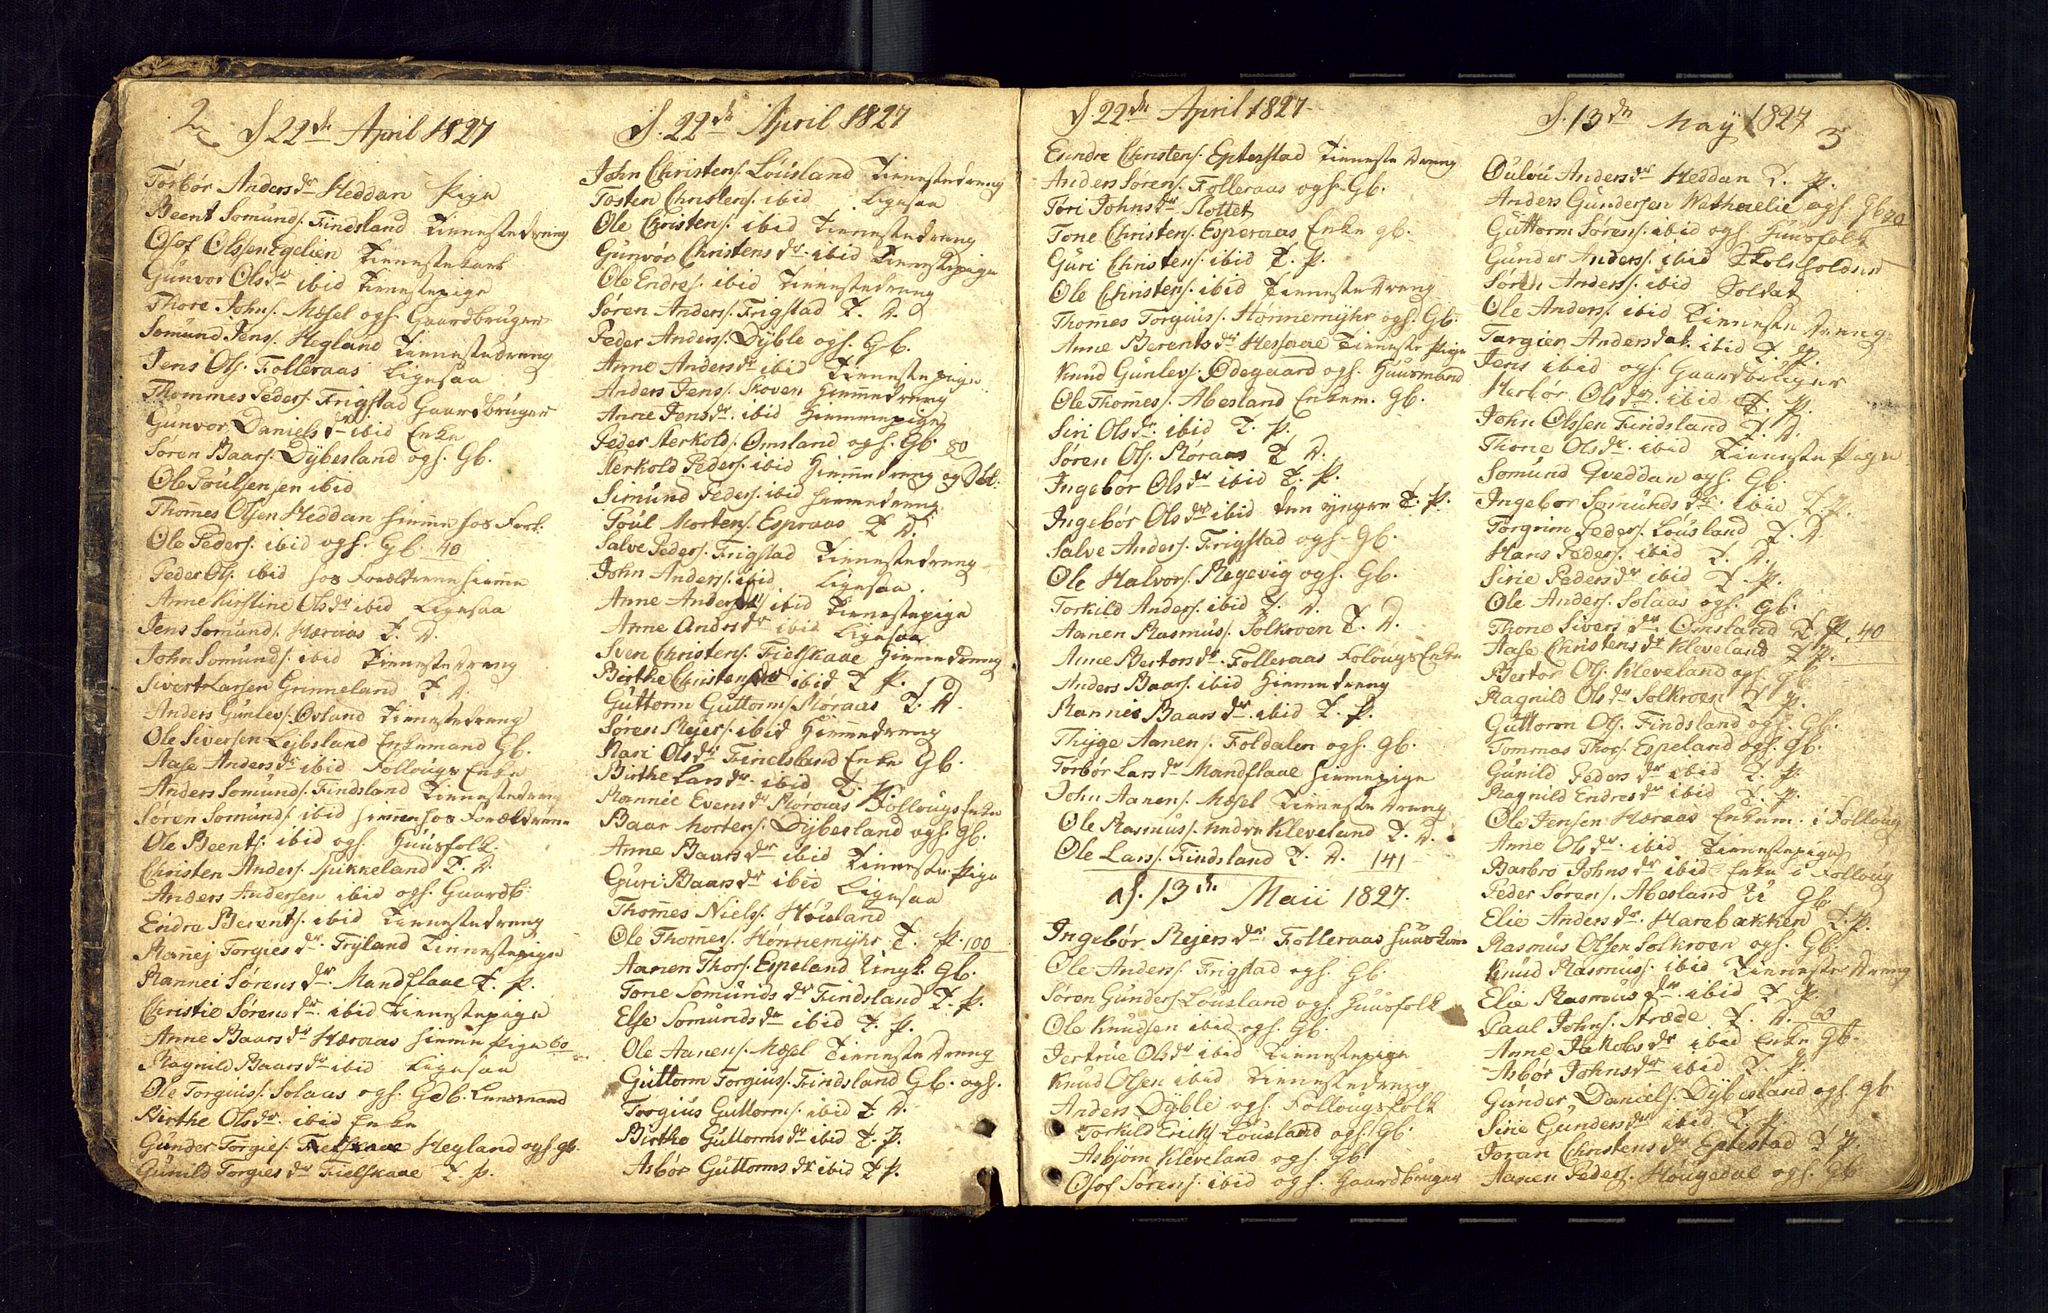 2
d 22de April 1827
Torbór Andersdr Heddan Pige
Beent Somunds. Findsland Tienestedreng
Osof Olsen Egelien Tienestekarl
Gunvor Olsdr ibid Tienestepige
Thore Johns. Mæsel ogs. Gaardbruger
Somund Jens. Hegland Tienestedreng
Jens Ols. Folleraas Ligesaa
Thommes Peders. Frigstad Gaardbruger
Gunvor Danielsdr ibid Enke
Søren Baars. Dybesland ogs. Gb.
Ole Poulsensen ibid
Thomes Olsen Heddan hiemme hos
Ole Peders. ibid ogs. Gb. 40
Peder Ols. ibid hos Forældrene hiemme
Anne Kirstine Olsdr ibid Ligesaa
Jens Somunds. Hæraas T. D.
John Somunds. ibid Tienestedreng
Sivert Larsen Grinneland T. D.
Anders Gunlevs. Øvland Tienestedreng
Ole Siversen Leibsland Enkemand Gb.
Aase Andersdr ibid Follougs Enke
Anders Somunds. Findsland Tienestedreng
Søren Somunds. ibid hiemme hos Forældrene
Ole Beents. ibid ogs. Huusfolk
Christen Anders. Spikkeland T. D
Anders Andersen ibid ogs. Gaardb.
Endre Berents. ibid Tienestedreng
Aannej Torgiesdr. Tryland Tienestepige
Rannei Sørensdr. Mandflaae T. P.
Christie Sørensdr. ibid Tienestepige
Anne Baarsdr Hæraas hiemme Pige 60
Ragnild Baarsdr ibid Ligesaa
Ole Torgius. Solaas ogs. Gdb. Lensmand
Birthe Olsdr. ibid Enke
Gunder Torgies. Hegland ogs. gb.
Gunild Torgiesdr Fielskaae T. P.
d. 22de April 1827
John Christens. Lousland Tienestedreng
Tosten Christens. ibid Ligesaa
Ole Christens. ibid Tienestedreng
Gunvor Christensdr. ibid Tienestepige
Ole Endres. ibid Tienestedreng
Søren Anders. Frigstad T. D.
Peder Anders. Dyble ogs. Gb.
Anne Andersdr ibid Tienestepige
Anders Jens. Skoven Hiemmedreng
Anne Jensdr. ibid Hiemmepige
Peder Nerkold. Omsland ogs. Gb. 80
Nerkold Peders. ibid Hiemmedreng og
Simund Peders. ibid hiemmedreng
Poul Mortens. Espraas T D.
Salve Peders. Frigstad Tienestedreng
John Anders. ibid Ligesaa.
Anne Andersdr ibid Tienestepige
Anne Andrsdr ibid Ligesaa
Sven Christens. Fielskaae Hiemmedreng
Birthe Christensdr ibid T. P.
Guttorm Guttorms. Moraas T. D.
Søren Rejers. ibid Hiemmedreng
Kari Olsdr Findsland Enke Gb.
Birthe Larsdr. ibid T. P.
Rannie Evensdr Røraas Follougs Enke
Baar Mortens. Dybesland ogs. gb.
Anne Baarsdr ibid Tieneste Pige
Guri Baarsdr ibid Ligesaa
Thommes Niels. Houland
Ole Thommes. Hønnemyhr T. P. 100
Aanen Thors. Espeland Ungk. Gb.
Tone Somundsdr Findsland T. P.
Else Somundsdr ibid T. P.
Ole Aanens. Mæsel Tieneste Dreng
Guttorm Torgius. Findsland Gb. ogs.
Torgius Guttorms. ibid T. D.
Birthe Guttormsdr ibid T. P.
Asbør Guttormsdr ibid T. P.
d. 22de April 1827
Eendre Christens. Epterstad Tieneste Dreng
Anders Sørens. Folleraas ogs. Gb.
Tori Johnsdr Slottet
Tone Christens. Esperaas Enke gb.
Guri Christens. ibid T. P.
Ole Christens. ibid Tieneste Dreng
Thommes Torgius. Hønnemyhr ogs. Gb.
Anne Berentsdr Hesaae Tieneste Pige
Knud Gunlevs. Ødegaard ogs. Huusmand
Ole Thomes. Abesland Enkem. Gb.
Siri Olsdr. ibid T. P.
Søren Ols. Røraas T D.
Ingebór Olsdr ibid T. P.
Ingebór Olsdr ibid den yngre T. P.
Salve Anders. Frigstad ogs. Gb.
Ole Halvors. Regevig ogs. Gb.
Torkild Anders. ibid T. D.
Aanen Rasmus. Solkroen T. D.
Anne Bertorsdr. Folleraas Follougs Enke
Anders Baars. ibid Hiemmedreng
Rannie Baarsdr. ibid T. P.
Thyge Aanens. Foldalen ogs. gb.
Torbør Larsdr Mandflaae Hiemmepige
John Aanens. Mæsel Tieneste Dreng
Ole Rasmus. nedre Kleveland T. D.
Ole Lars. Findsland T. D. 141
d. 13de Maii 1827.
Ingebór Rejersdr Folleraas
Ole Anders. Frigstad ogs. Gb.
Søren Gunders. Lousland ogs. Huusfolk
Ole Knudsen ibid ogs. Gb.
Jertrue Olsdr ibid Tienestepige
Knud Olsen ibid Tienestedreng
Anders Dyble ogs. Follougsfolk
Torkild Ericks. Lousland ogs. Gb.
Asbjorn Kleveland ogs. Gb.
Osof Sørens. ibid ogs. Gaardbruger
d. 13de May 1827
3
Oulou Andersdr Heddan T. P.
Anders Gundersen Watnelie ogs. Gb 20
Guttorm Sørens. ibid ogs. Huusfolk
Gunder Anders. ibid
Søren Anders. ibid Soldat
Ole Anders. ibid Tieneste Dreng
Targien Andersdat. ibid T. P.
Jens ibid ogs. Gaardbruger
Herbør Olsdr. ibid T. P.
John Olssen Findsland T D.
Thone Olsdr. ibid Tieneste Pige
Somund Qveddan ogs. Gb.
Ingebor Somundsdr. ibid T. P.
Torgrim Peders. Lousland T. D
Hans Peders. ibid T. D.
Sirie Pedersdr ibid T. P.
Ole Anders. Solaas ogs. Gb.
Thone Siversdr Omsland T. P. 40
Aase Christensdr Kleveland T P.
Bertor Ols. Kleveland ogs. Gb
Ragnild Olsdr Solkroen T P.
Guttorm Ols. Findsland ogs. Gb.
Tommas Thors. Espeland ogs. Gb.
Gunild Pedersdr ibid T. P.
Ragnild Endresdr ibid T. P.
Ole Jensen Hæraas Enkem. i Folloug
Anne Olsdr. ibid Tienestepige
Barbro Johnsdr ibid Enke i Folloug
Peder Sørens. Abesland Gb.
Elie Andersdr. Harebakken T. P.
Rasmus Olsen Solkroen ogs. Gb.
Knud Rasmus. ibid Tieneste Dreng
Elie Rasmusdr. ibid T. P.
Paal Johns. Stræde T. D. 60
Anne Jakobsdr ibid Enke Gb.
Asbør Johnsdr ibid T. P.
Gunder Daniels. Dybesland ogs. gb.
Sirie Gundersdr ibid T. P.
Joran Christensdr Eptestad T P
Aanen Peders. Hougedal ogs. Gb